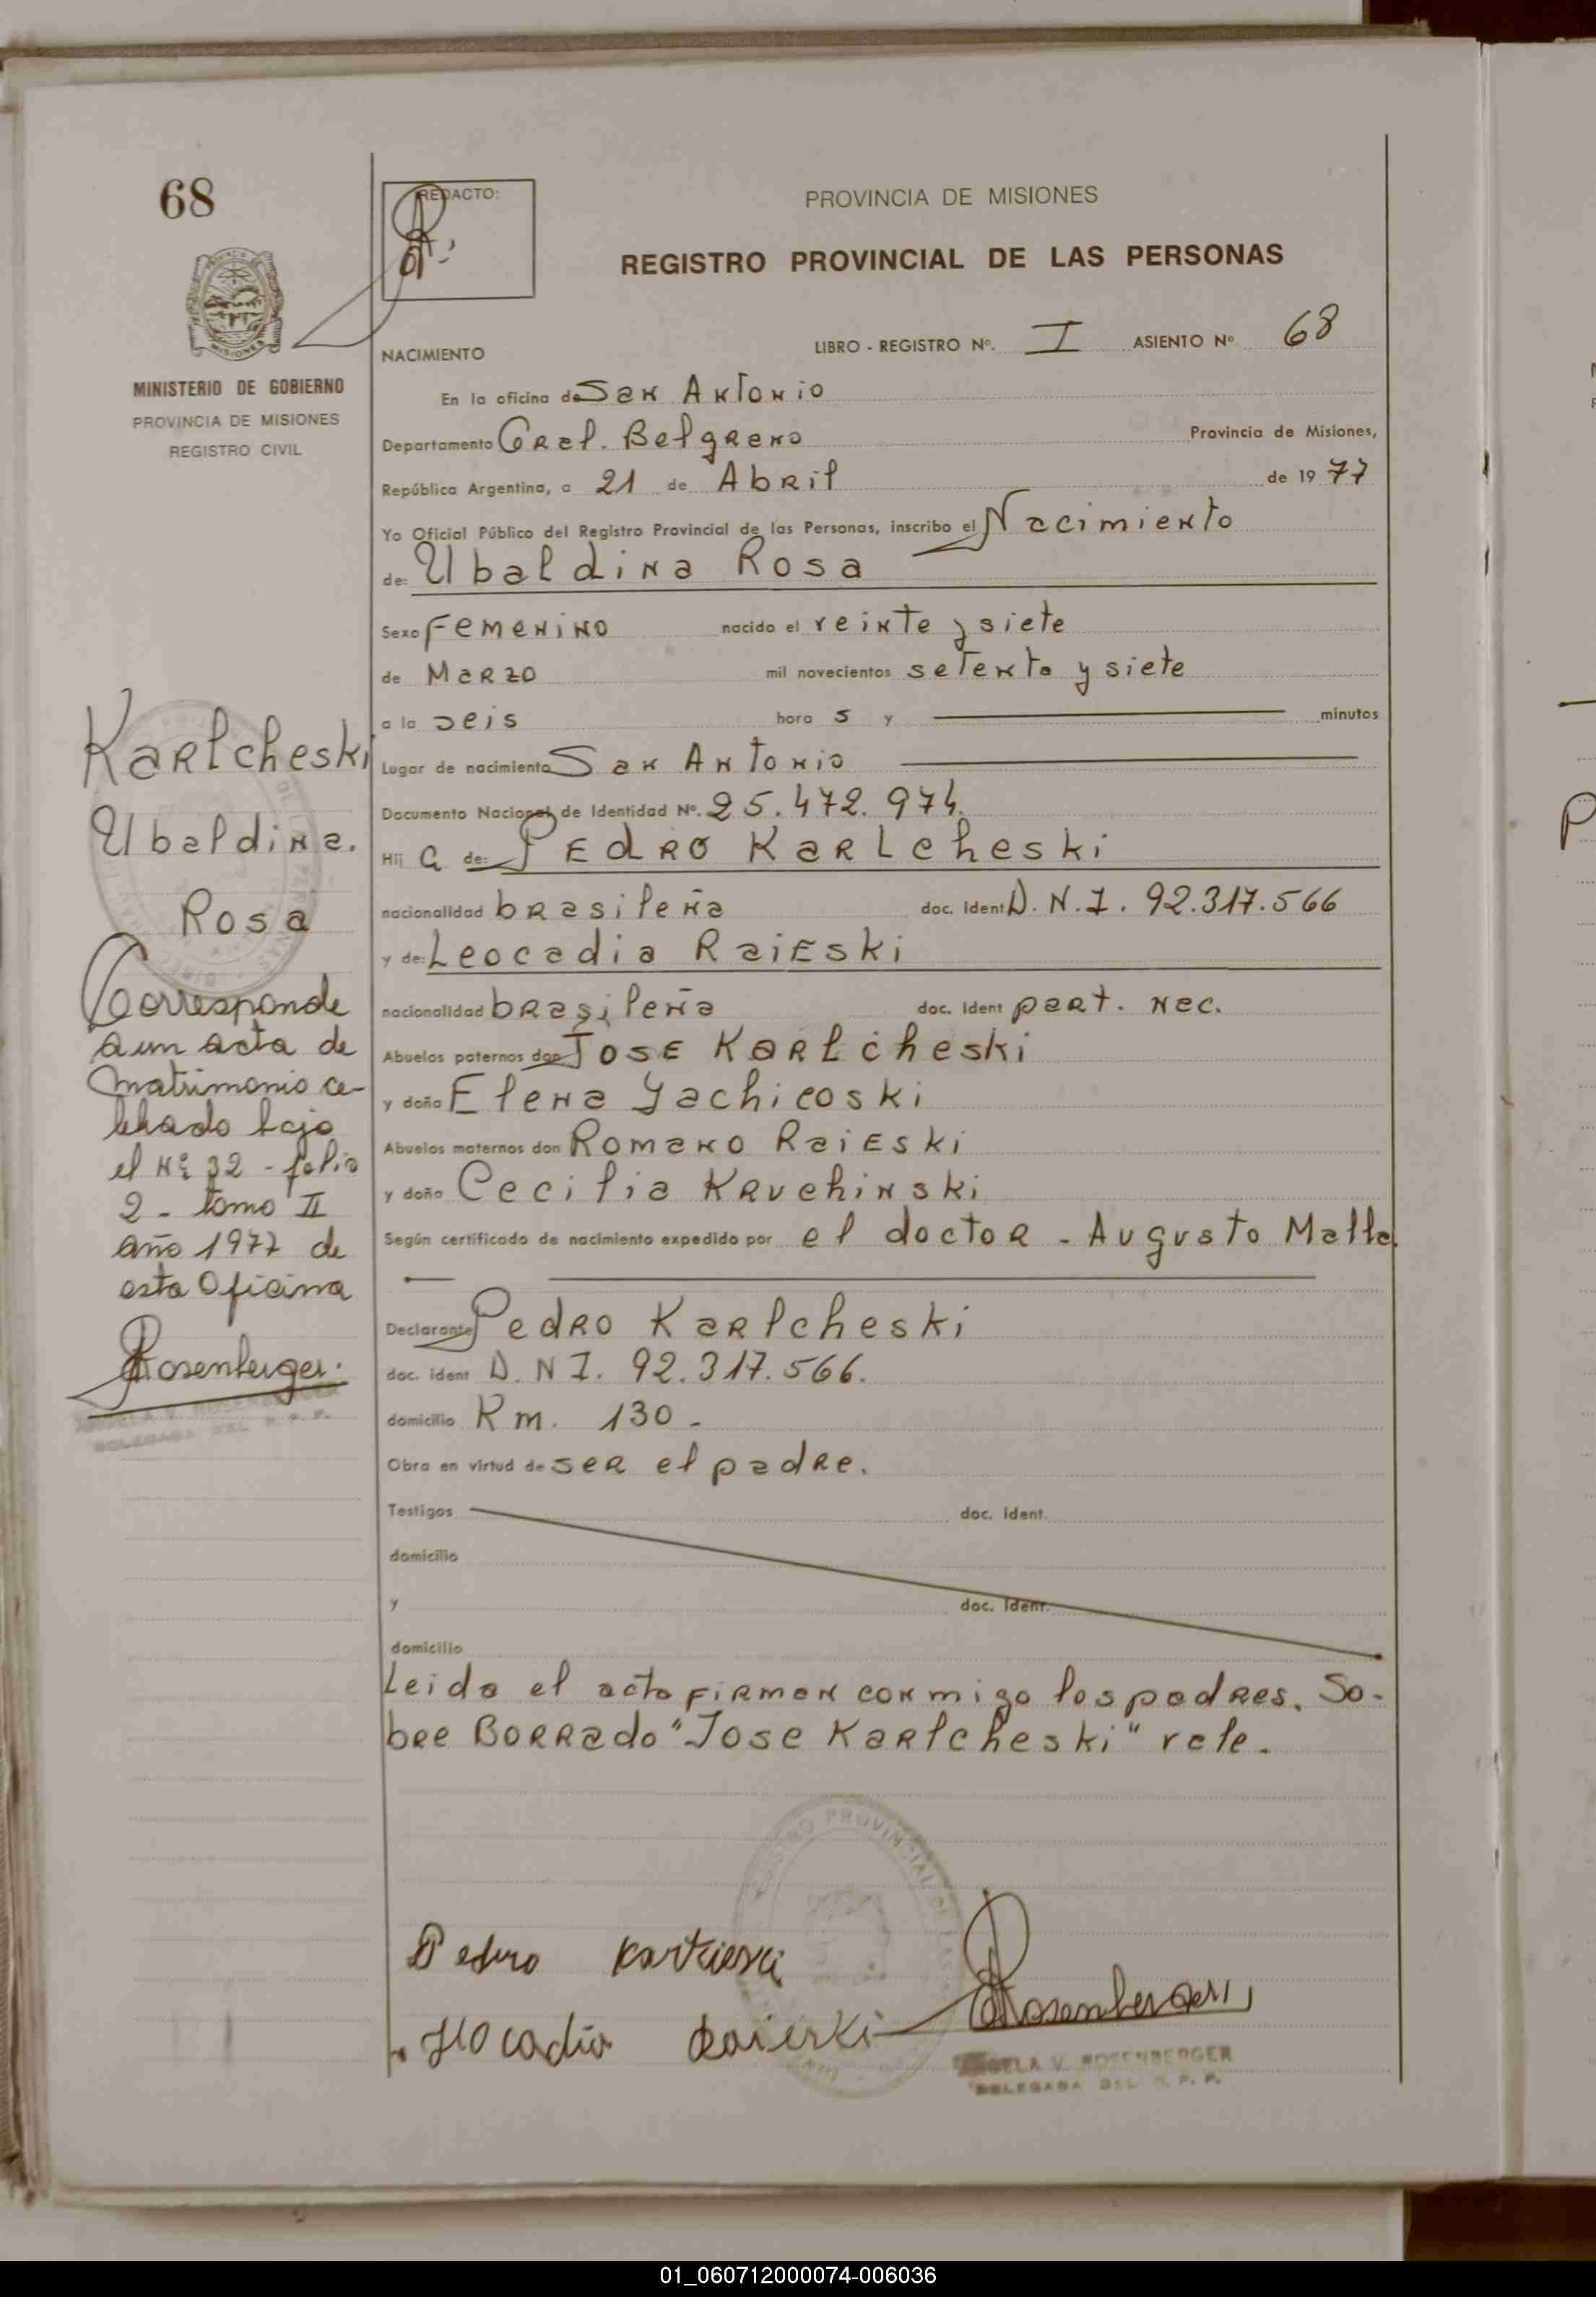 68
MINISTERIO DE GOBIERNO
PROVINCIA DE MISIONES
REGISTRO CIVIL
Karlcheski
Ubaldina.
Rosa
Corresponde
a un acta de
matrimonio ce-
lebrado bajo
el Nº 32 - folio
2 - tomo II
año 1977 de
esta Oficina
Rosenberger.
ANGELA V. ROSENBERGER
DELEGADA DEL R. P. P.
REDACTO:
PROVINCIA DE MISIONES
REGISTRO PROVINCIAL DE LAS PERSONAS
NACIMIENTO LIBRO - REGISTRO Nº. I ASIENTO Nº 68
En la oficina de San Antonio
Departamento Gral. Belgrano Provincia de Misiones,
República Argentina, a 21 de Abril de 1977
Yo Oficial Público del Registro Provincial de las Personas, inscribo el Nacimiento
de: Ubaldina Rosa
Sexo Femenino nacido el veinte y siete
de Marzo mil novecientos setenta y siete
a la seis hora s y minutos
Lugar de nacimiento San Antonio
Documento Nacional de Identidad Nº. 25.472.974.
Hij a de: Pedro Karlcheski
nacionalidad brasileña doc. ident D.N.I. 92.317.566
y de: Leocadia Raieski
nacionalidad brasileña doc. ident part. nac.
Abuelos paternos don Jose Karlcheski
y doña Elena Yachicoski
Abuelos maternos don Romano Raieski
y doña Cecilia Kruchinski
Según certificado de nacimiento expedido por el doctor - Augusto Matta.
Declarante Pedro Karlcheski
doc. ident D.N.I. 92.317.566.
domicilio Km. 130 -
Obra en virtud de ser el padre.
Testigos doc. ident.
domicilio
y doc. ident.
domicilio
Leida el acta firman conmigo los padres. So-
bre Borrado "Jose Karlcheski" vale.
Pedro
Rosenberger
Raieski
ANGELA V. ROSENBERGER
DELEGADA DEL R. P. P.
01_060712000074-006036